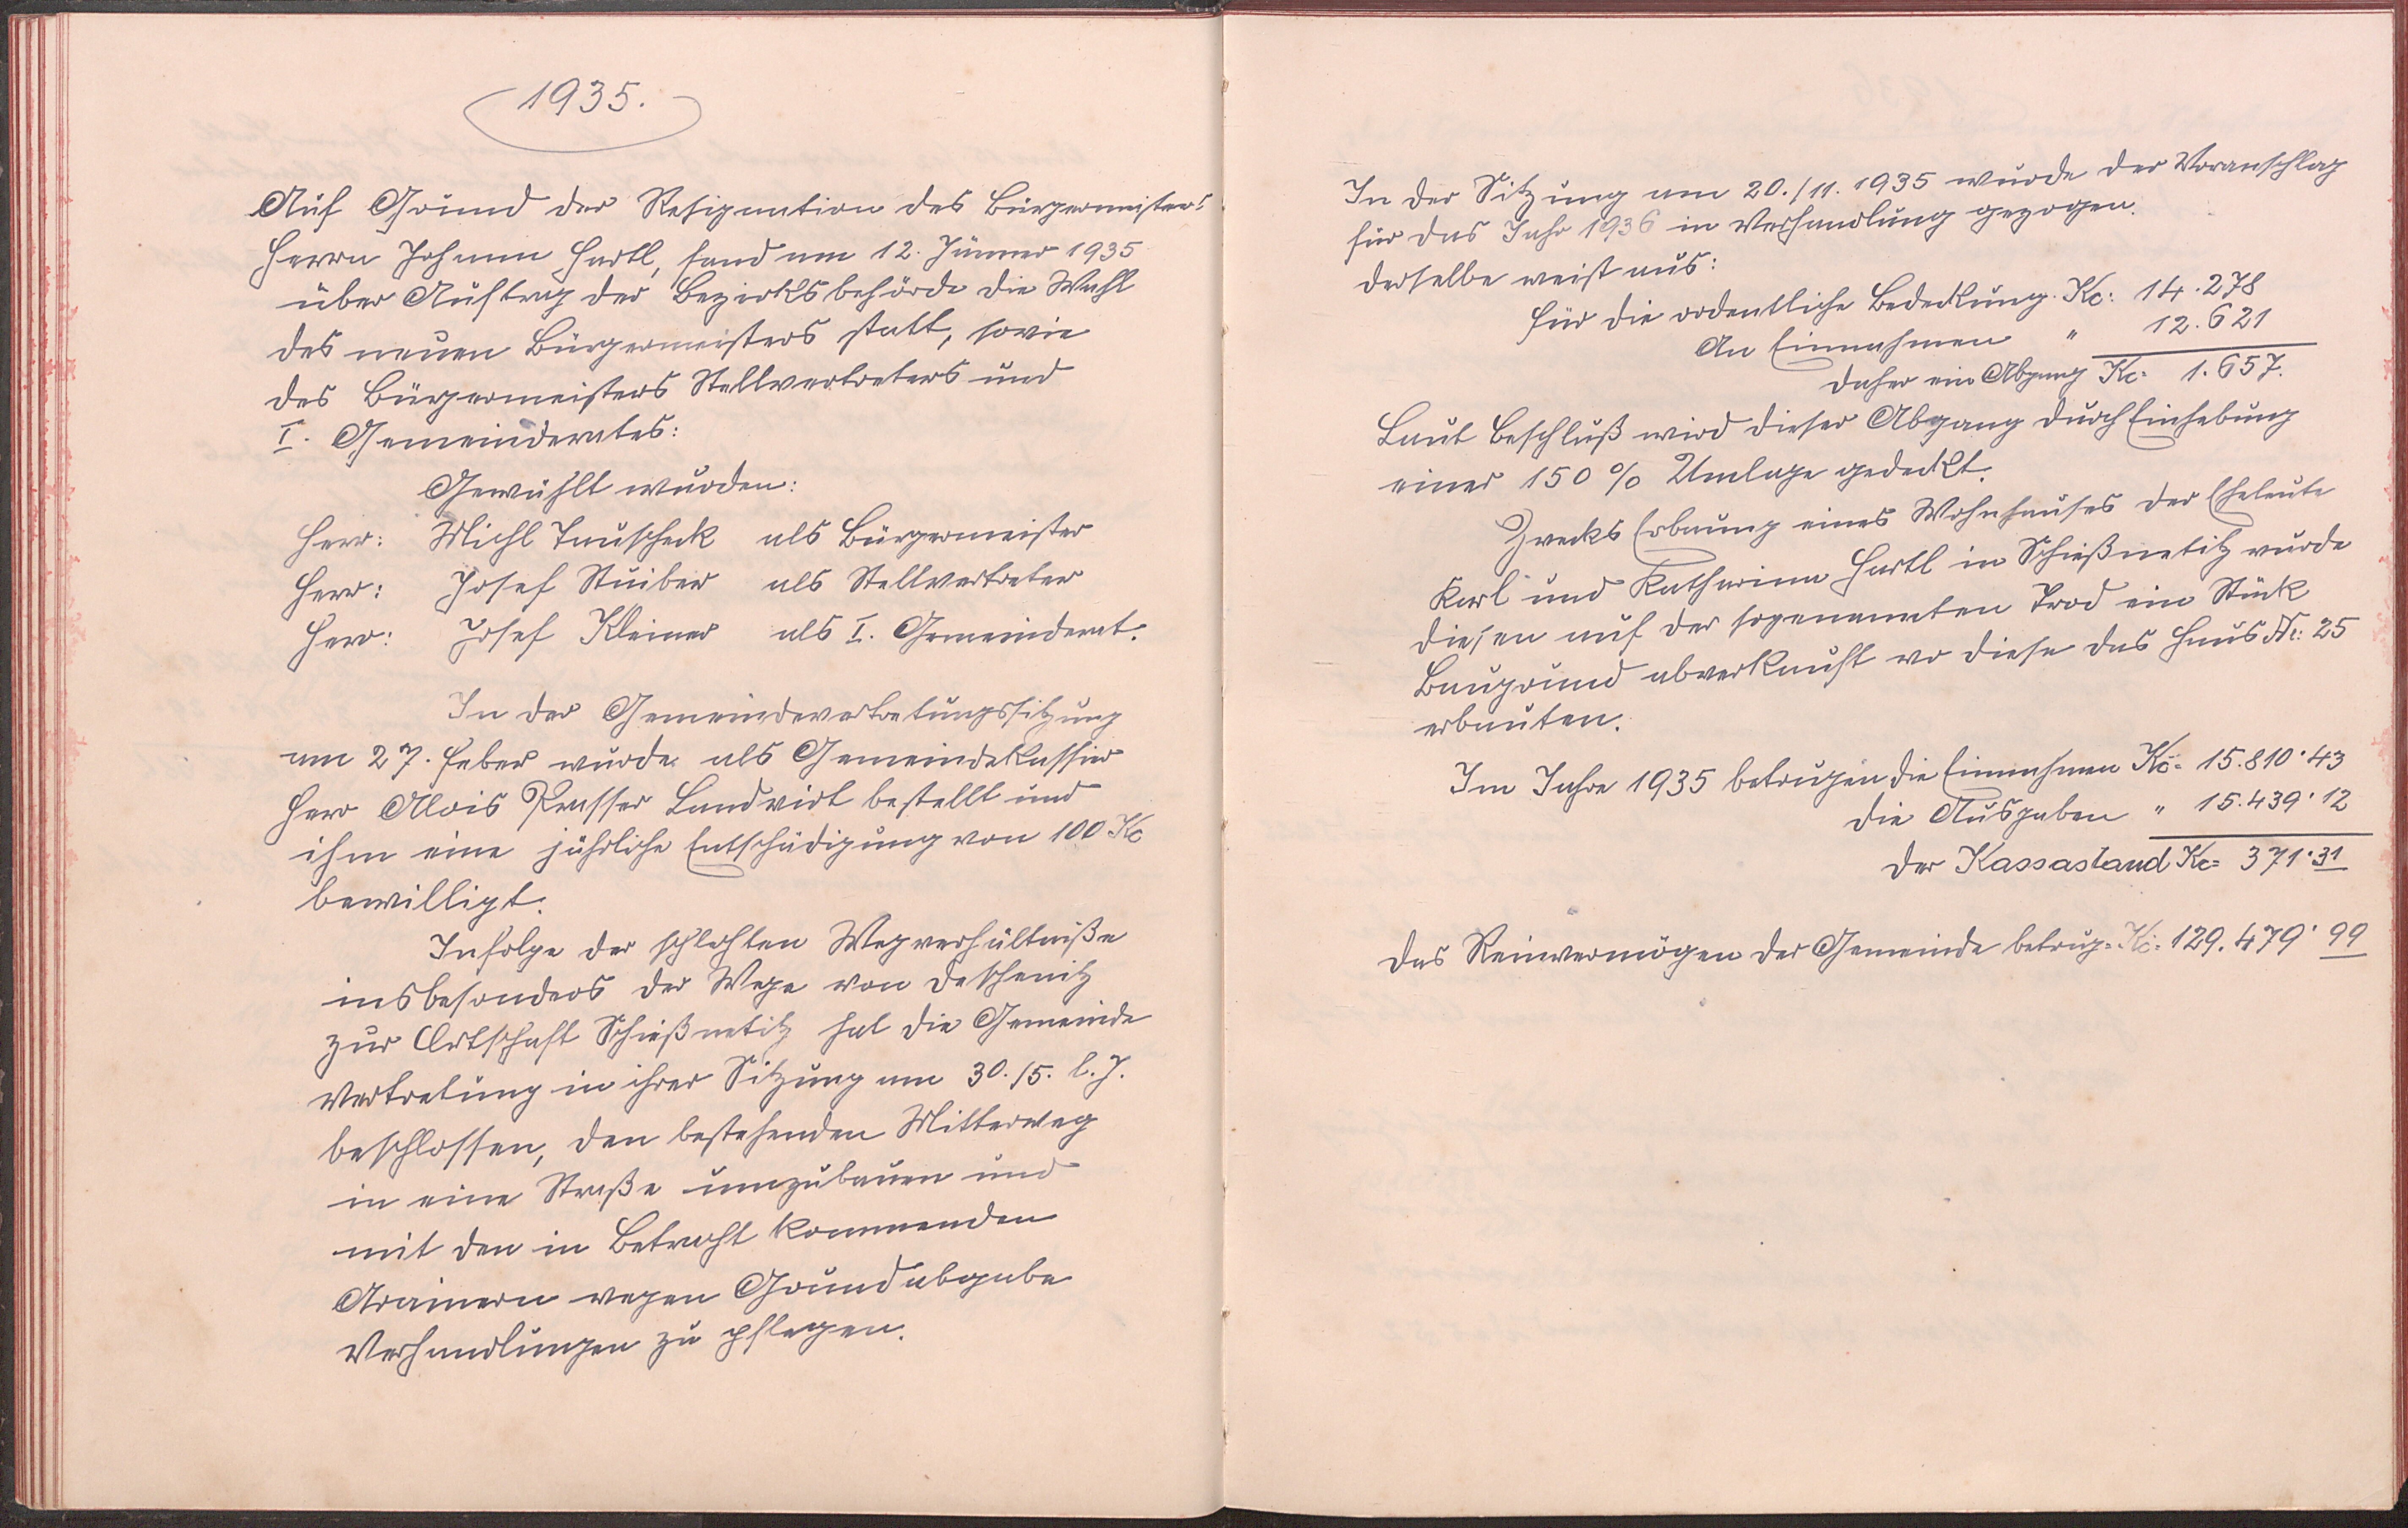 1935.
Auf Grund der Resignation des Bürgermeisters
Herrn Johann Hartl, fand am 12. Jänner 1935
über Auftrag der Bezirksbehörde die Wahl
des neuen Bürgermeisters statt, sowie
des Bürgermeisters Stellvertreters und
I. Gemeinderates:
Gewählt wurden:
Herr: Michl Tauschek als Bürgermeister
Herr: Josef Stuiber als Stellvertreter
Herr: Josef Kleiner als I. Gemeinderat.
In der Gemeindevertretungssitzung
am 27. Feber wurde als Gemeindekassier
Herr Alois Prasser Landwirt bestellt und
ihm eine jährliche Entschädigung von 100 Kc
bewilligt.
Infolge der schlechten Wegverhältniße
insbesonders der Wege von Deschenitz
zur Ortschaft Schießnetitz hat die Gemeinde
Vertretung in ihrer Sitzung am 30./5. l. J.
beschlossen, den bestehenden Mitterweg
in eine Straße umzubauen und
mit den in Betracht kommenden
wegen Grundabgabe
Verhandlungen zu pflegen.
In der Sitzung am 20./11. 1935 wurde der Voranschlag
für das Jahr 1936 in Verhandlung gezogen.
derselbe weist aus:
für die ordentliche Bedeckung. Kc: 14.278
An Einnahmen " 12.621
daher ein Abgang Kc= 1.657.
Laut Beschluß wird dieser Abgang durch Einhebung
einer 150 % Umlage gedeckt.
Zwecks Erbauung eines Wohnhauses der Eheleute
Karl und Katharina Hartl in Schießnetitz wurde
diesen auf der sogenannten Trad ein Stück
Baugrund abverkauft wo diese das Haus Nr: 25
erbauten.
Im Jahre 1935 betrugen die Einnahmen Kč= 15.810·43
die Ausgaben " 15.439·12
der Kassastand Kc= 371·31
Das Reinvermögen der Gemeinde betrug= Kč= 129.479·99